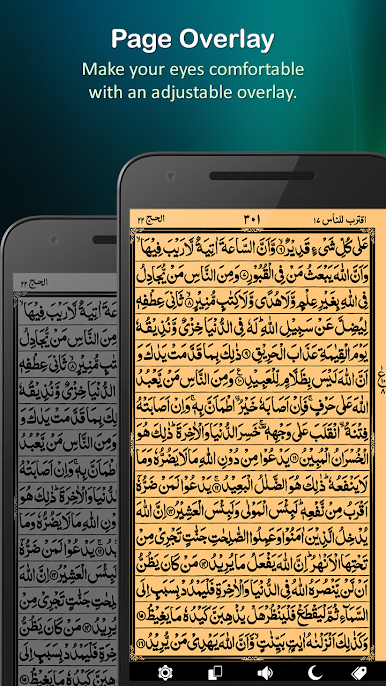 Page Overlay
Make your eyes comfortable
with an adjustable overlay.
الحج ٢٢
٣٠١
اقترب للناس ١٧
عَلٰى كُلِّ شَىْءٍ قَدِيْرٌ ۙ﴿۶﴾ وَّاَنَّ السَّاعَةَ اٰتِيَةٌ لَّا رَيْبَ فِيْهَا ۙ
وَاَنَّ اللّٰهَ يَبْعَثُ مَنْ فِى الْقُبُوْرِ ﴿۷﴾ وَمِنَ النَّاسِ مَنْ يُّجَادِلُ
فِى اللّٰهِ بِغَيْرِ عِلْمٍ وَّلَا هُدًى وَّلَا كِتٰبٍ مُّنِيْرٍ ۙ﴿۸﴾ ثَانِىَ عِطْفِهٖ
لِيُضِلَّ عَنْ سَبِيْلِ اللّٰهِ ؕ لَهٗ فِى الدُّنْيَا خِزْىٌ وَّنُذِيْقُهٗ
يَوْمَ الْقِيٰمَةِ عَذَابَ الْحَرِيْقِ ﴿۹﴾ ذٰلِكَ بِمَا قَدَّمَتْ يَدٰكَ وَ
اَنَّ اللّٰهَ لَيْسَ بِظَلَّامٍ لِّلْعَبِيْدِ ﴿۱۰﴾ وَمِنَ النَّاسِ مَنْ يَّعْبُدُ
اللّٰهَ عَلٰى حَرْفٍ ۚ فَاِنْ اَصَابَهٗ خَيْرُ ۨاطْمَاَنَّ بِهٖ ۚ وَاِنْ اَصَابَتْهُ
فِتْنَةُ ۨانْقَلَبَ عَلٰى وَجْهِهٖ ۚ خَسِرَ الدُّنْيَا وَالْاٰخِرَةَ ؕ ذٰلِكَ هُوَ
الْخُسْرَانُ الْمُبِيْنُ ﴿۱۱﴾ يَدْعُوْا مِنْ دُوْنِ اللّٰهِ مَا لَا يَضُرُّهٗ وَمَا
لَا يَنْفَعُهٗ ؕ ذٰلِكَ هُوَ الضَّلٰلُ الْبَعِيْدُ ﴿۱۲﴾ يَدْعُوْا لَمَنْ ضَرُّهٗۤ
اَقْرَبُ مِنْ نَّفْعِهٖ ؕ لَبِئْسَ الْمَوْلٰى وَلَبِئْسَ الْعَشِيْرُ ﴿۱۳﴾ اِنَّ اللّٰهَ
يُدْخِلُ الَّذِيْنَ اٰمَنُوْا وَعَمِلُوا الصّٰلِحٰتِ جَنّٰتٍ تَجْرِىْ مِنْ
تَحْتِهَا الْاَنْهٰرُ ؕ اِنَّ اللّٰهَ يَفْعَلُ مَا يُرِيْدُ ﴿۱۴﴾ مَنْ كَانَ يَظُنُّ
اَنْ لَّنْ يَّنْصُرَهُ اللّٰهُ فِى الدُّنْيَا وَالْاٰخِرَةِ فَلْيَمْدُدْ بِسَبَبٍ اِلَى
السَّمَآءِ ثُمَّ لْيَقْطَعْ فَلْيَنْظُرْ هَلْ يُذْهِبَنَّ كَيْدُهٗ مَا يَغِيْظُ ﴿۱۵﴾
وَكَذٰلِكَ اَنْزَلْنٰهُ اٰيٰتٍۭ بَيِّنٰتٍ ۙ وَّاَنَّ اللّٰهَ يَهْدِىْ مَنْ يُّرِيْدُ ﴿۱۶﴾